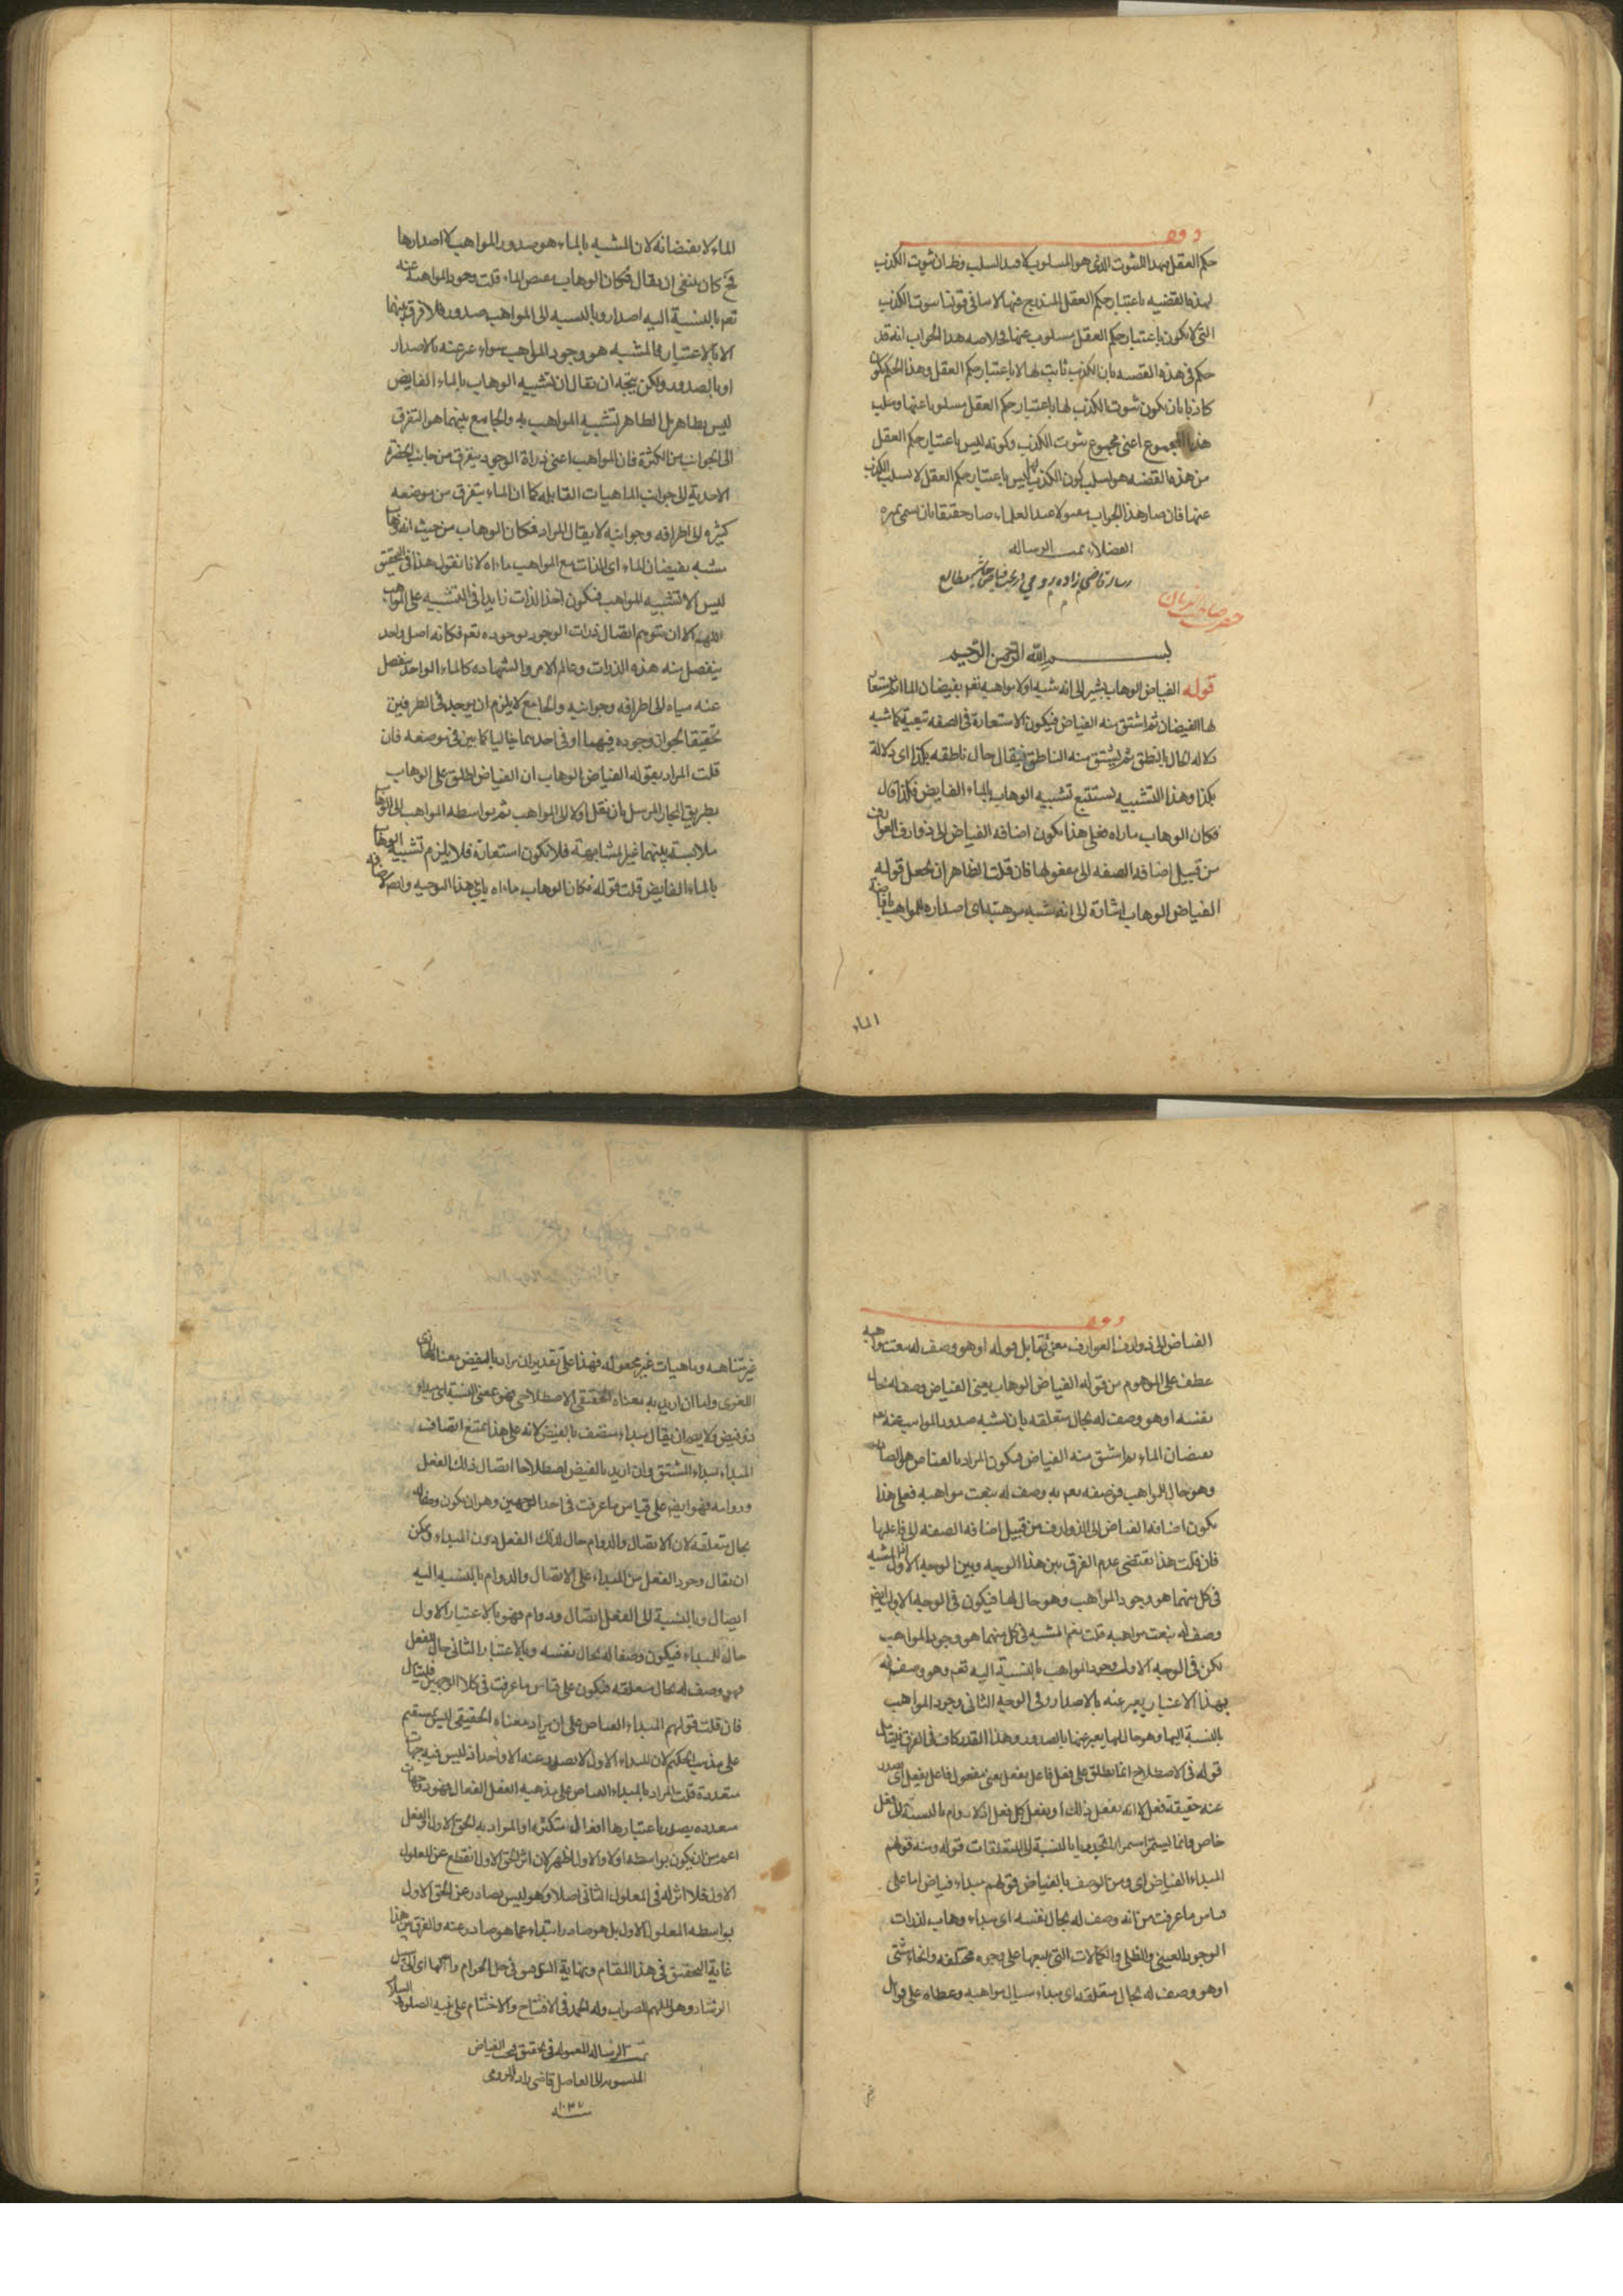 حكم العقل بهذا الثبوت الذى هو المسلوب لا قيد السلب وظ ان ثبوت الكذب
لهذه القضيه باعتبار حكم العقل المندرج فيها لا ينافى قولنا ثبوت الكذب
التى لا يكون باعتبار حكم العقل مسلوب عنها وخلاصه هذا الجواب انه قد
حكم فى هذه القضيه بان الكذب ثابت لها لا باعتبار حكم العقل وهذا الحكم يكون
كاذبا بان يكون ثبوت الكذب لها باعتبار حكم العقل مسلوبا عنها وسلب
هذا المجموع اعنى مجموع ثبوت الكذب وكونه ليس باعتبار حكم العقل
من هذه القضيه هو سلب كون الكذب لها ليس باعتبار حكم العقل لا سلب الكذب
عنها فان صار هذا الجواب مقبولا عند العلماء صار حقيقا بان يسمى
الفضلاء تمت الرساله
رساله قاضى زاده رومى در بحث فياض حاشيه مطالع
بسم الله الرحمن الرحيم
قوله الفياض الوهاب يشير الى انه شبه اولا مواهبه تعم بفيضان الماء ثم استعار
لها الفيضان ثم اشتق منه الفياض فيكون الاستعارة فى الصفه تبعية كما شبه
دلاله الحال بالنطق ثم يشتق منه الناطق فيقال حال ناطقه بكذا اى دلالة
بكذا وهذا التشبيه يستتبع تشبيه الوهاب بالماء الفايض فلذا قال
فكان الوهاب ماء اه فعلى هذا يكون اضافه الفياض الى ذوارف العوارف
من قبيل اضافه الصفه الى مفعولها فان قلت الظاهر ان يجعل قوله
الفياض الوهاب اشارة الى انه شبه موهبته اى اصداره المواهب بافاضة
الماء
الماء لا بفيضانه لان المشبه بالماء هو صدور المواهب لا اصدارها
فح كان ينبغى ان يقال فكان الوهاب مفيض الماء قلت وجود المواهب عنه
تعم بالنسبة اليه اصدار وبالنسبه الى المواهب صدور فلا فرق بينهما
الا بالاعتبار فالمشبه هو وجود المواهب سواء عبر عنه بالاصدار
او بالصدور ولكن يتجه ان يقال ان تشبيه الوهاب بالماء الفايض
ليس بظاهر بل الظاهر تشبيه المواهب به والجامع بينهما هو التفرق
الى الجوانب من الكثرة فان المواهب اعنى ذراة الوجود يتفرق من جانب الحضرة
الاحديه الى جوانب الماهيات القابله كما ان الماء يتفرق من موضعه
كثيره الى اطرافه وجوانبه لا يقال المراد فكان الوهاب من حيث انه وهاب
مشبه بفيضان الماء اى الذات مع المواهب ماء اه لانا نقول هذا فى التحقيق
ليس الا تشبيه المواهب فيكون اخذ الذات زايدا فى التشبيه على المواهب
اللهم الا ان يتوهم اتصال ذرات الوجود بوجوده تعم فكانه اصل واحد
ينفصل منه هذه الذرات وعالم الامر والشهاده كالماء الواحد ينفصل
عنه مياه الى اطرافه وجوانبه والجامع لا يلزم ان يوجد فى الطرفين
تحقيقا لجواز وجوده فيهما او فى احدهما خياليا كما بين فى موضعه فان
قلت المراد بقوله الفياض الوهاب ان الفياض اطلق على الوهاب
بطريق المجاز المرسل بان نقل اولا الى المواهب ثم بواسطه المواهب الى الوهاب
ملابسة بينهما غير مشابهة فلا يكون استعارة فلا يلزم تشبيه الوهاب
بالماء الفايض قلت قوله فكان الوهاب ماء اه يابى هذا التوجيه وايضا لاضافه
الفياض الى ذوارف العوارف معنى تقابل قوله او هو وصف له بنعت مواهبه
عطف على الموهوم من قوله الفياض الوهاب يعنى الفياض وصف له بحال
نفسه او هو وصف له بحال متعلقه بان شبه صدور المواهب عنه تعم
بفيضان الماء ثم اشتق منه الفياض فيكون المراد بالفياض هو الصادر
وهو حال المواهب فوصفه تعم به وصف له بنعت مواهبه فعلى هذا
يكون اضافه الفياض الى الذوارف من قبيل اضافه الصفه الى فاعلها
فان قلت هذا يقتضى عدم الفرق بين هذا الوجه وبين الوجه الاول اذ المشبه
فى كل منهما هو وجود المواهب وهو حال لها فيكون فى الوجه الاول ايضا
وصف له بنعت مواهبه قلت نعم المشبه فى كل منهما هو وجود المواهب
لكن فى الوجه الاول وجود المواهب بالنسبة اليه تعم وهو وصف له
بهذا الاعتبار يعبر عنه بالاصدار وفى الوجه الثانى وجود المواهب
بالنسبة اليها وهو حال لها يعبر عنها بالصدور وهذا القدر كاف فى الفرق فليتامل
قوله فى الاصطلاح انما يطلق على فعل فاعل يفعل يعنى مفعول فاعل يفعل اى يصدر
عنه حقيقة فعل لا انه يفعل ذلك او يفعل كل فعل اذ لا دوام بالنسبة الى فعل
خاص وانما يستمر استمرارا تجدديا بالنسبة الى المتعلقات قوله ومنه قولهم
المبداء الفياض اى ومن الوصف بالفياض قولهم مبداء فياض اما على
قياس ما عرفت من انه وصف له بحال نفسه اى مبداء وهاب لذرات
الوجود العينى والظلى والكمالات التى يتبعها على وجوه مختلفه وانحاء شتى
او هو وصف له بحال متعلقه اى مبداء سيال مواهبه وعطاه على قوابل
غير
غير متناهيه وماهيات غير مجعوله فهذا على تقدير ان يراد بالفيض معناه المجازى
اللغوى واما ان اريد به معناه الحقيقى الاصطلاحى فهو بمعنى النسبة اى مبداء
ذو فيض ولا يصح ان يقال مبداء متصف بالفيض لانه على هذا يمتنع اتصاف
المبداء بمبداء المشتق وان اريد بالفيض اصطلاحا اتصال ذلك الفعل
ودوامه فهو ايضا على قياس ما عرفت فى احد الوجهين وهو ان يكون وصفا له
بحال متعلقه لان الاتصال والدوام حال لذلك الفعل دون المبداء ويمكن
ان يقال وجود الفعل من المبداء على الاتصال والدوام بالنسبه اليه
ايصال وبالنسبة الى الفعل اتصال ودوام فهو بالاعتبار الاول
حال للمبداء فيكون وصفا له بحال نفسه وبالاعتبار الثانى حال الفعل
فهو وصف له بحال متعلقه فيكون على قياس ما عرفت فى كلا الوجهين فليتامل
فان قلت قولهم المبداء الفياض على ان يراد معناه الحقيقى ليس بمستقيم
على مذهب الحكيم لان المبداء الاول لا يصدر عنه الا واحد اذ ليس فيه جهات
متعددة قلت المراد بالمبداء الفياض على مذهبه العقل الفعال فهو ذو جهات
متعدده يصدر باعتبارها افعال متكثره او المراد به الحق الاول والفعل
اعم من ان يكون بواسطه او لا والاول اظهر لان اثر الحق الاول انقطع عن المعلول
الاول فلا اثر له فى المعلول الثانى اصلا وهو ليس بصادر عن الحق الاول
بواسطه المعلول الاول بل هو صادر ابتداء عما هو صادر عنه والفرق بين هذا
غاية التحقيق فى هذا المقام ونهاية التدقيق فى حل الحرام
الرشاد وهو الملهم للصواب وله الحمد فى الافتتاح والاختتام على نبيه الصلوة والسلام
تمت الرساله المعموله فى تحقيق بحث الفياض
المنسوب الى الفاضل قاضى زاده الرومى
سنه ١٠٣٧